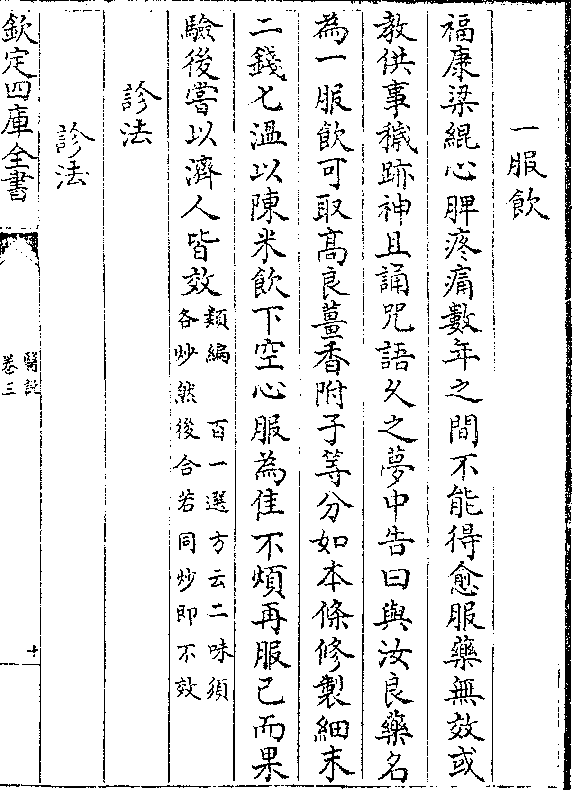 一服飲
福康梁緄心脾疼痛數年之間不能得愈服藥無效或
教供事穢跡神且誦咒語久之夢中告曰與汝良藥名
為一服飲可取髙良薑香附子等分如本條修製細末
二錢七溫以陳米飲下空心服為佳不煩再服已而果
驗後嘗以濟人皆效類編　百一選方云二味須
各炒然後合若同炒即不效
診法
診法
欽定四庫全書
醫說
卷三
十